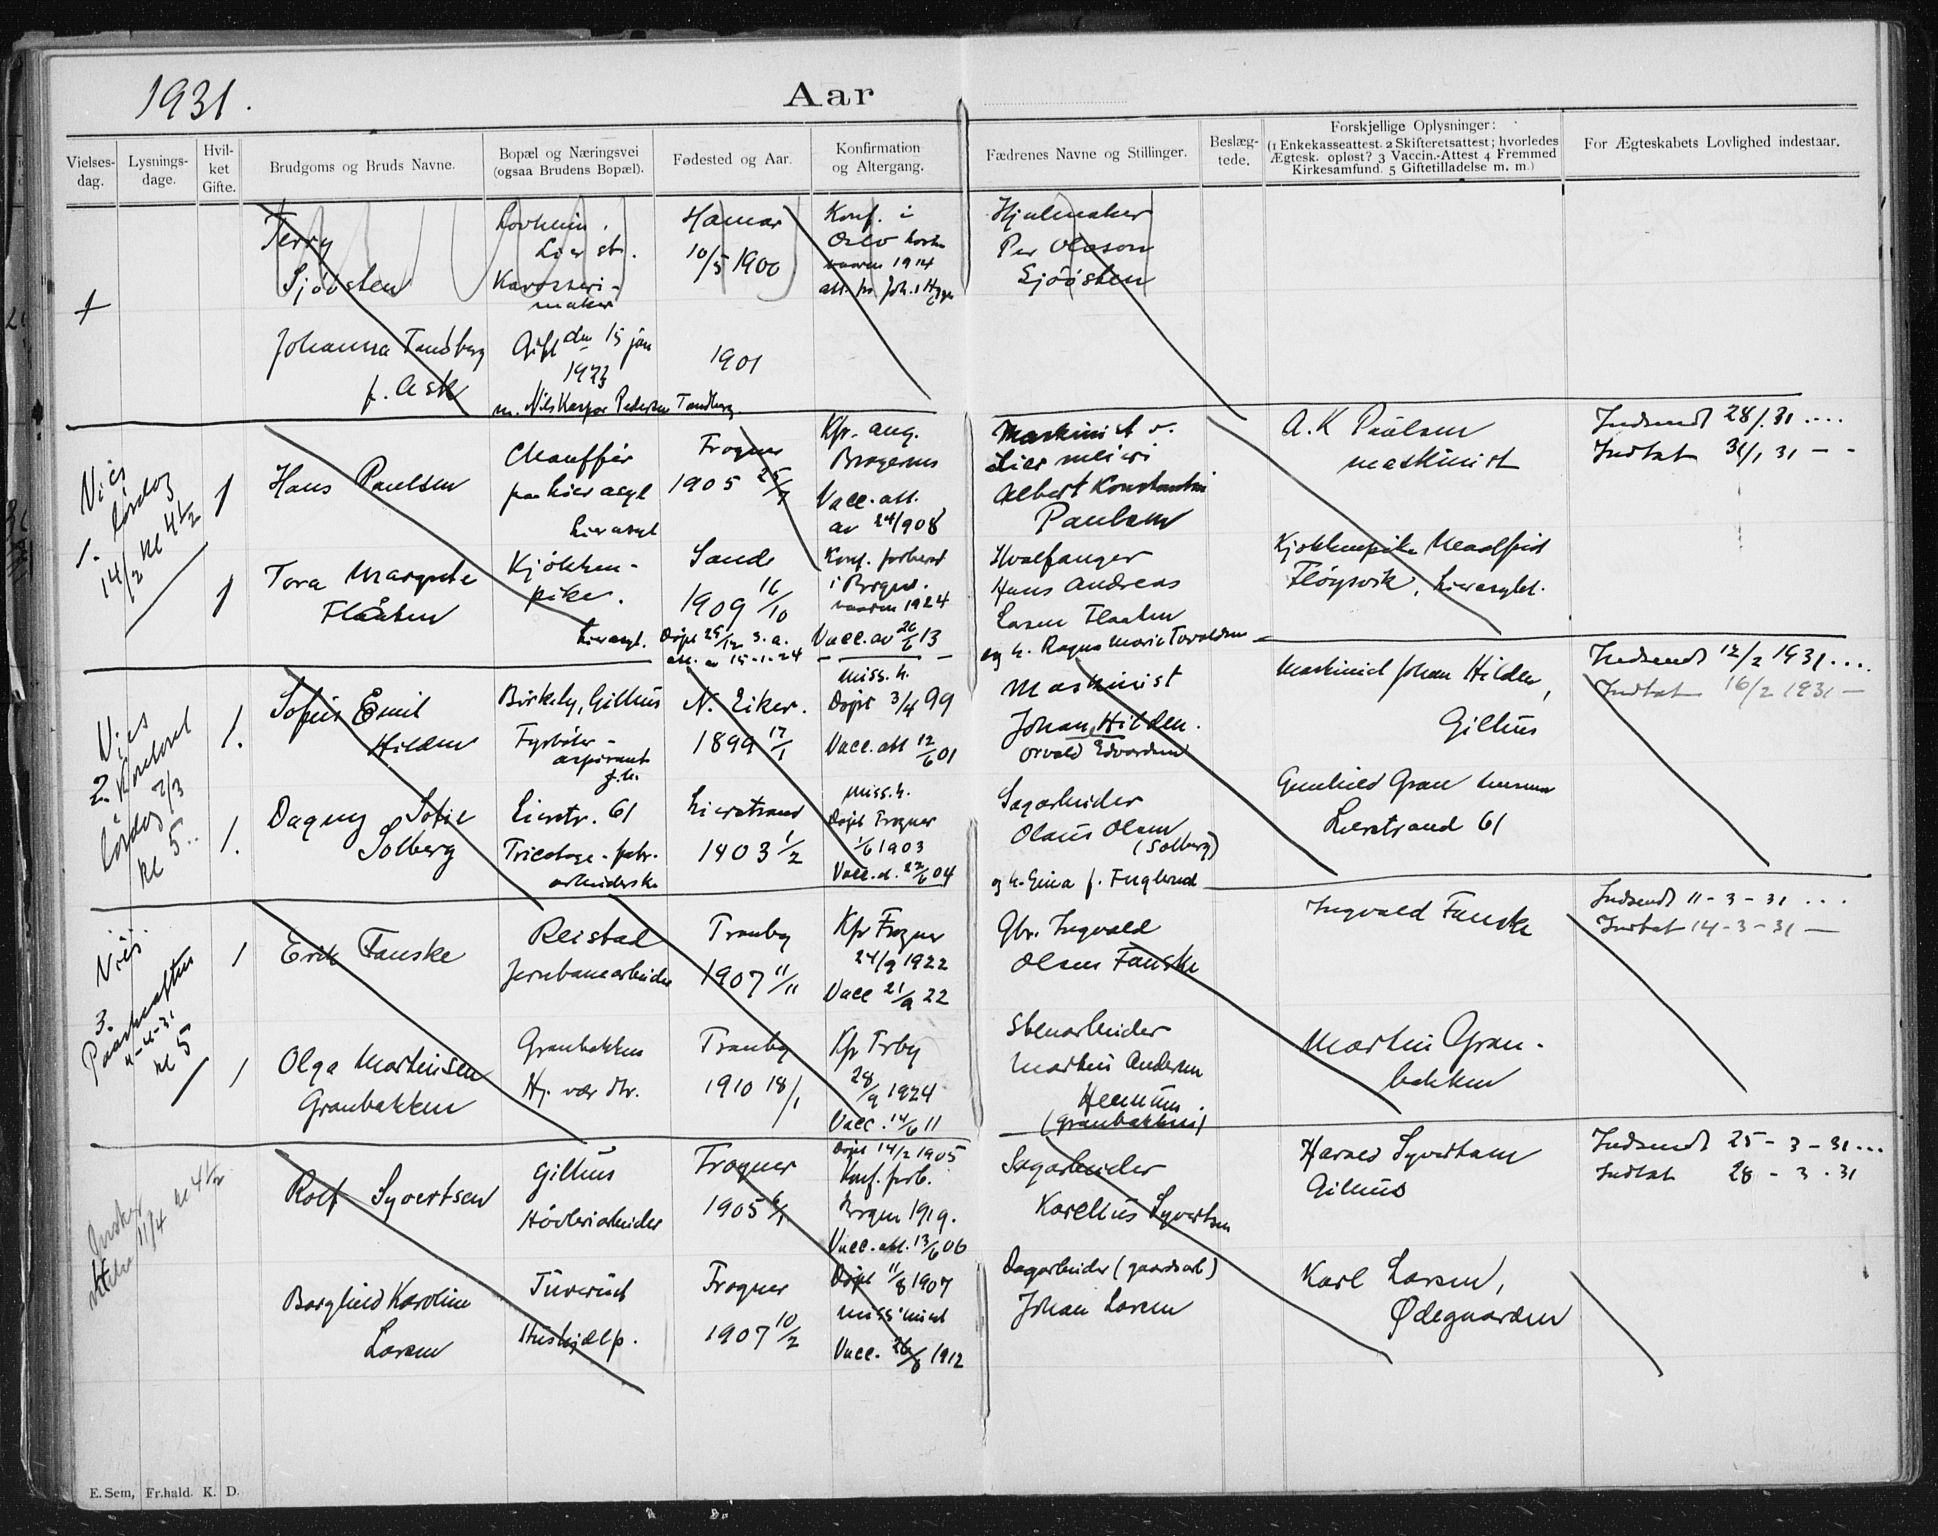 1931.
Aar
Vielses-
dag.
Lysnings-
dage.
Hvil-
ket
Gifte.
Brudgoms og Bruds Navne.
Bopæl og Næringsvei
(ogsaa Brudens Bopæl).
Fødested og Aar.
Konfirmation
og Altergang.
Fædrenes Navne og Stillinger.
Beslæg-
tede.
Forskjellige Oplysninger:
(1 Enkekasseattest. 2 Skifteretsattest; hvorledes
Ægtesk. opløst? 3 Vaccin.-Attest 4 Fremmed
Kirkesamfund. 5 Giftetilladelse m. m.)
For Ægteskabets Lovlighed indestaar.
Terry
Sjöösten
Lier st.
Karosseri-
maker
Hamar
10/5 1900
Konf. i
Oslo
vaaren 1914
Hjulmaker
Per Olsson
Sjöösten
Johanna Tandberg
f. Ask
Gift den 15 jan
1923
m. Nils Kaspar Pedersen Tandberg
1901
Vies
lördag
1. 14/2 kl 4 1/2
1
Hans Paulsen
Chauffør
paa Lier asyl
Lierasyl
Frogner
1905 25/7
Kfr. aug.
Bragernes
Vacc. att.
av 24/9 08
Maskinist v.
Lier meieri
Albert Konstantin
Paulsen
A. K Paulsen
maskinist
Indsendt 28/1 31 ....
Indtat 31/1 31 - -
1
Tora Margrete
Flåten
Kjøkken-
pike.
Lierasyl.
Sande
1909 16/10
Døpt 25/12 s. a.
att. av 15-1-24
Konf. forbered
i Bragernes.
vaaren 1924
Vacc. av 26/6 13
Hvalfanger
Hans Andreas
Larsen Flaaten
og h. Ragna Marie Torvaldsen
Kjøkkenpike
Fløysvik, Lierasylet.
Vies
2. Kontoret
lørdag 7/3
kl 5..
1.
Sofus Emil
Hilden
Birkely, Gilhus
Fyrbøter-
aspirant
N. Eiker.
1899 17/1
miss. h.
Døpt 3/4 99
Vacc. att 12/6 01
Maskinist
Johan Hilden.
Orvald Edvardsen
Maskinist Johan Hilden,
Gilhus
Indsendt 12/2 1931....
Indtat 16/2 1931 -
1.
Dagny Sofie
Solberg
Lierstr. 61
Tricotage-fabr.
arbeiderske
Lierstrand
1903 1/2
miss. h.
Døpt Frogner
1/6 1903
Vacc. a. 22/6 04
Sagarbeider
Olaus Olsen
(Solberg)
og h. Gina f. Fuglerud
Gunhild Gran
Lierstrand 61
Vies.
3.
Paaskeaften
4-4-31
kl 5
1
Erik Fauske
Reistad
Jernbanearbeider
Tranby
1907 11/11
Kfr Frogner
24/9 1922
Vacc 21/9 22
Gbr. Ingvald
Olsen Fauske
Ingvald Fauske
Indsendt 11-3-31 ...
Indtat 14-3-31 -
1
Olga Martinsen
Granbakken
Granbakken
Hj. vær. dtr.
Tranby
1910 18/1
Kfr Trby
28/9 1924
Vacc. 14/6 11
Stenarbeider
Martin Andersen
(Granbakken)
Martin Gran-
bakken
Ønsker
11/4 kl 4 1/2
Rolf Syvertsen
Gilhus
Høvleriarbeider
Frogner
1905 6/1
Døpt 14/2 1905
Konf. forb.
Bragern 1919.
Vacc. att. 13/6 06
Sagarbeider
Karelius Syvertsen
Syvertsen
Gilhus
Indsendt 25-3-31...
Indtat 28-3-31
Borghild Karoline
Larsen
Tuverud
Hushjælp.
Frogner
1907 10/2
Døpt 11/8 1907
Vacc. 26/8 1912
Dagarbeider (gaardsarb)
Johan Larsen
Karl Larsen,
Ødegaarden
E. Sem, Fr.hald. K. D.